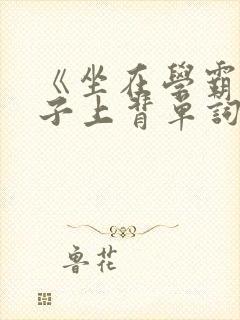 《坐在學霸
子上背單詞
魯花